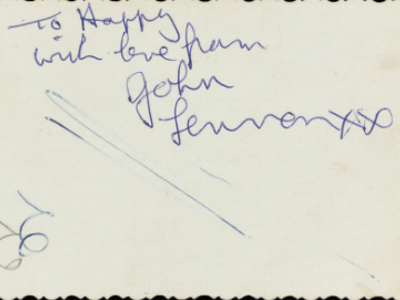 To Happy
with love from
John
Lennon xx